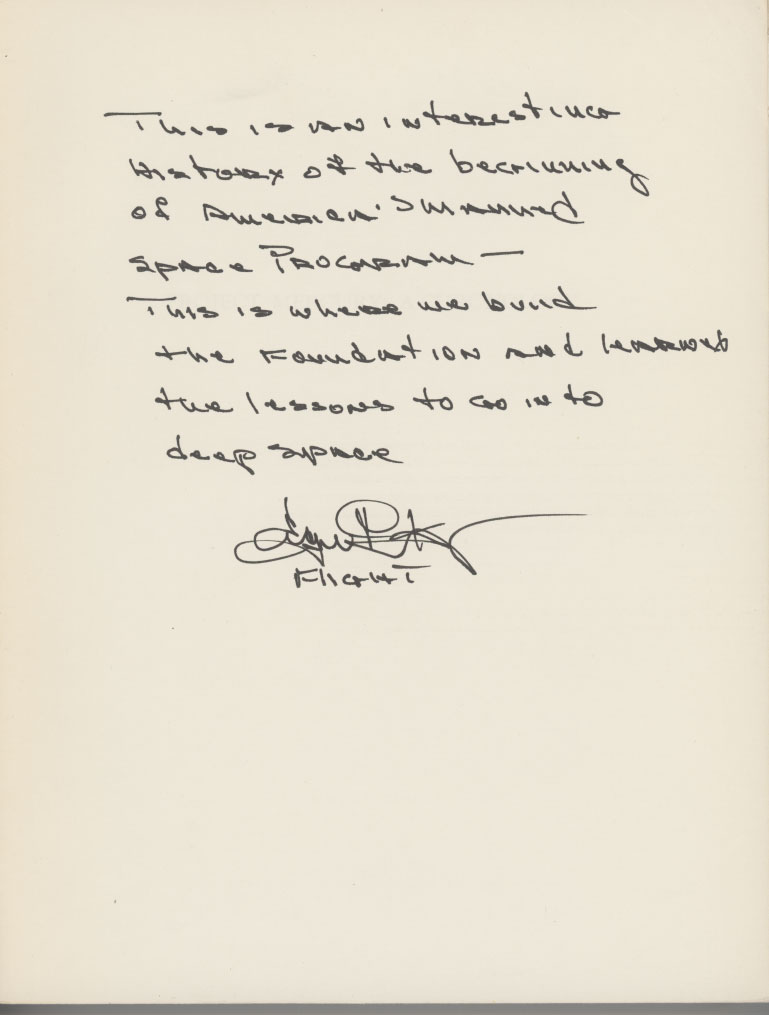 This is an interesting
History of the beginning
of America's manned
space Program —
This is where we build
the Foundation and learned
the lessons to go into
deep space
FLIGHT